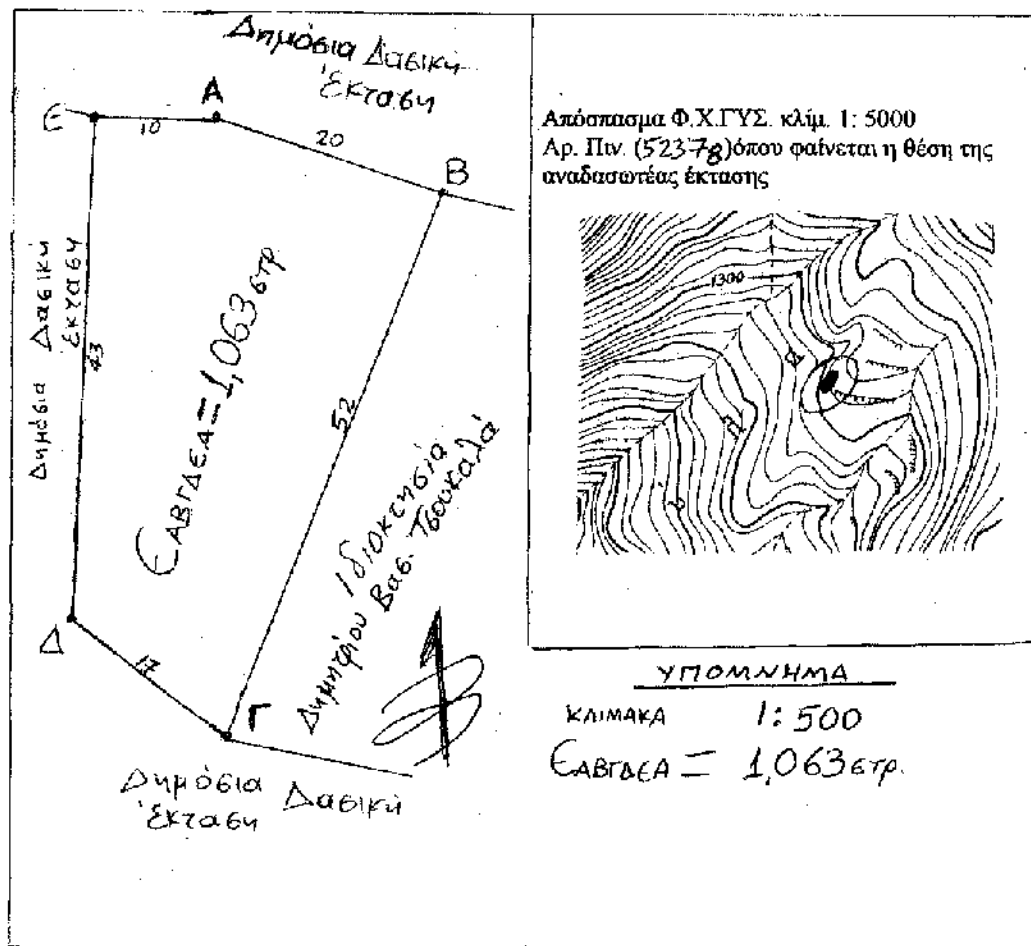 Δημόσια Δασική
Έκταση
Ε
10
Α
20
Β
Δημόσια Δασική
Έκταση
43
ΕΑΒΓΔΕΑ = 1,063 στρ.
52
Ιδιοκτησία
Δημητρίου Βασ. Τσουκαλά
Δ
17
Γ
Δημόσια Δασική
Έκταση
Απόσπασμα Φ.Χ.ΓΥΣ. κλίμ. 1: 5000
Αρ. Πιν. (52378)όπου φαίνεται η θέση της
αναδασωτέας έκτασης
1300
ΥΠΟΜΝΗΜΑ
ΚΛΙΜΑΚΑ 1:500
ΕΑΒΓΔΕΑ = 1,063 στρ.